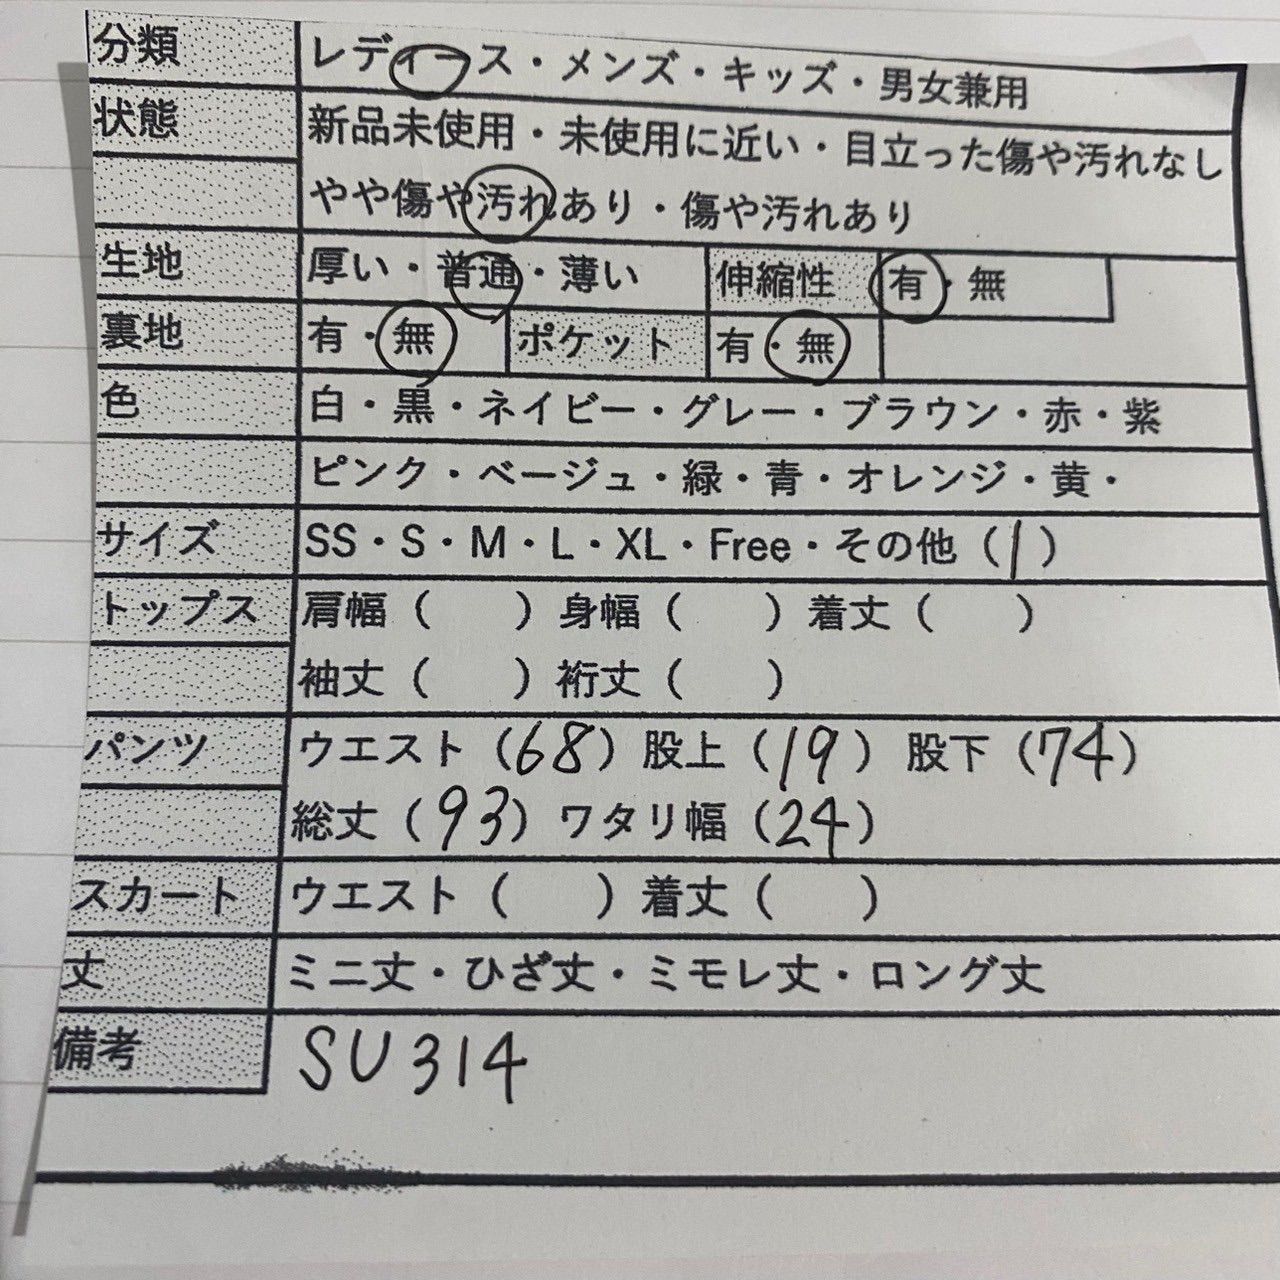 分類 レディース・メンズ・キッズ・男女兼用
状態 新品未使用・未使用に近い・目立った傷や汚れなし
やや傷や汚れあり・傷や汚れあり
生地 厚い・普通・薄い 伸縮性 有・無
裏地 有・無 ポケット 有・無
色 白・黒・ネイビー・グレー・ブラウン・赤・紫
ピンク・ベージュ・緑・青・オレンジ・黄・
サイズ SS・S・M・L・XL・Free・その他（1）
トップス 肩幅（　）身幅（　）着丈（　）
袖丈（　）裄丈（　）
パンツ ウエスト（68）股上（19）股下（74）
総丈（93）ワタリ幅（24）
スカート ウエスト（　）着丈（　）
丈 ミニ丈・ひざ丈・ミモレ丈・ロング丈
備考 SU314